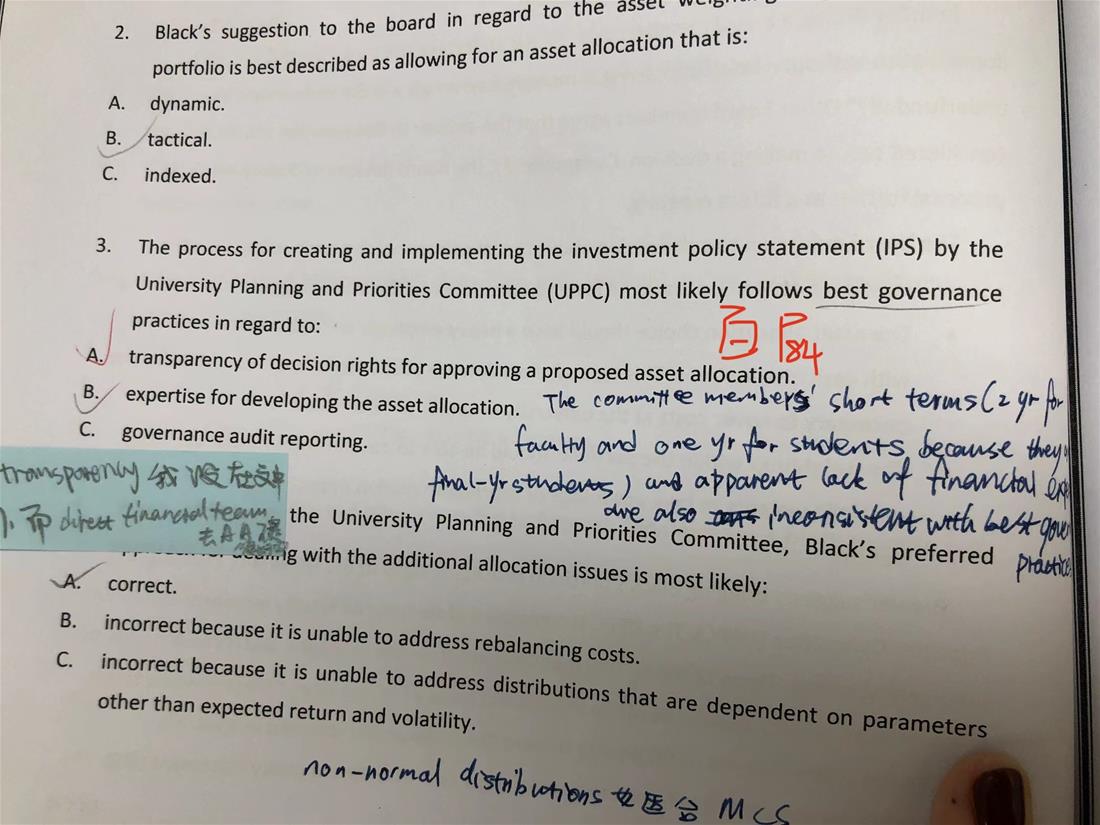 2. Black's suggestion to the board in regard to the asset
portfolio is best described as allowing for an asset allocation that is:
A. dynamic.
B. tactical.
C. indexed.
3. The process for creating and implementing the investment policy statement (IPS) by the
University Planning and Priorities Committee (UPPC) most likely follows best governance
practices in regard to:
P84
A. transparency of decision rights for approving a proposed asset allocation.
B. expertise for developing the asset allocation.
The committee members' short terms (2 yr for
C. governance audit reporting.
faculty and one yr for students, because they
final-yr students) and apparent lack of financial
are also inconsistent with best
practice
transparency
direct financial team
the University Planning and Priorities Committee, Black's preferred
with the additional allocation issues is most likely:
A. correct.
B. incorrect because it is unable to address rebalancing costs.
C. incorrect because it is unable to address distributions that are dependent on parameters
other than expected return and volatility.
non-normal distributions MCS